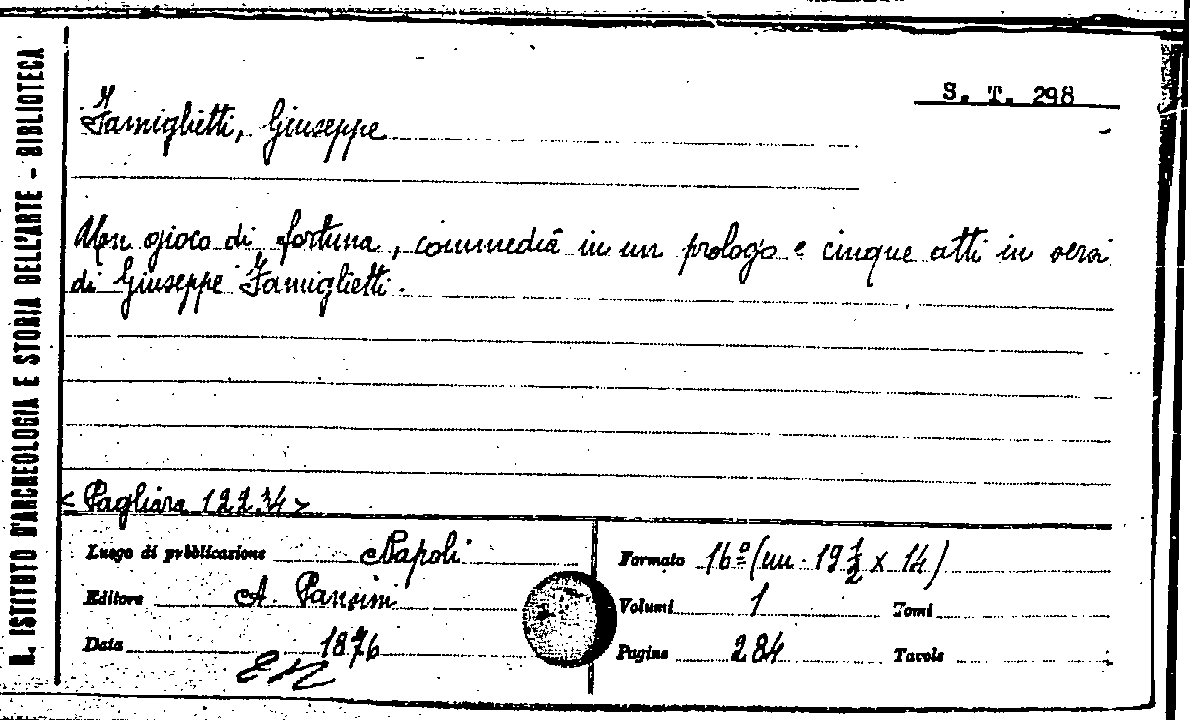 R. ISTITUTO D'ARCHEOLOGIA E STORIA DELL'ARTE - BIBLIOTECA
S. T. 298
Famiglietti, Giuseppe
Un gioco di fortuna, commedia in un prologo e cinque atti in versi
di Giuseppe Famiglietti.
< Pagliara 12.2.34 >
Luogo di pubblicazione Napoli
Editore A. Pansini
Data 1876
Formato 16º (cm. 19 1/2 x 14)
Volumi 1 Tomi
Pagine 284 Tavole